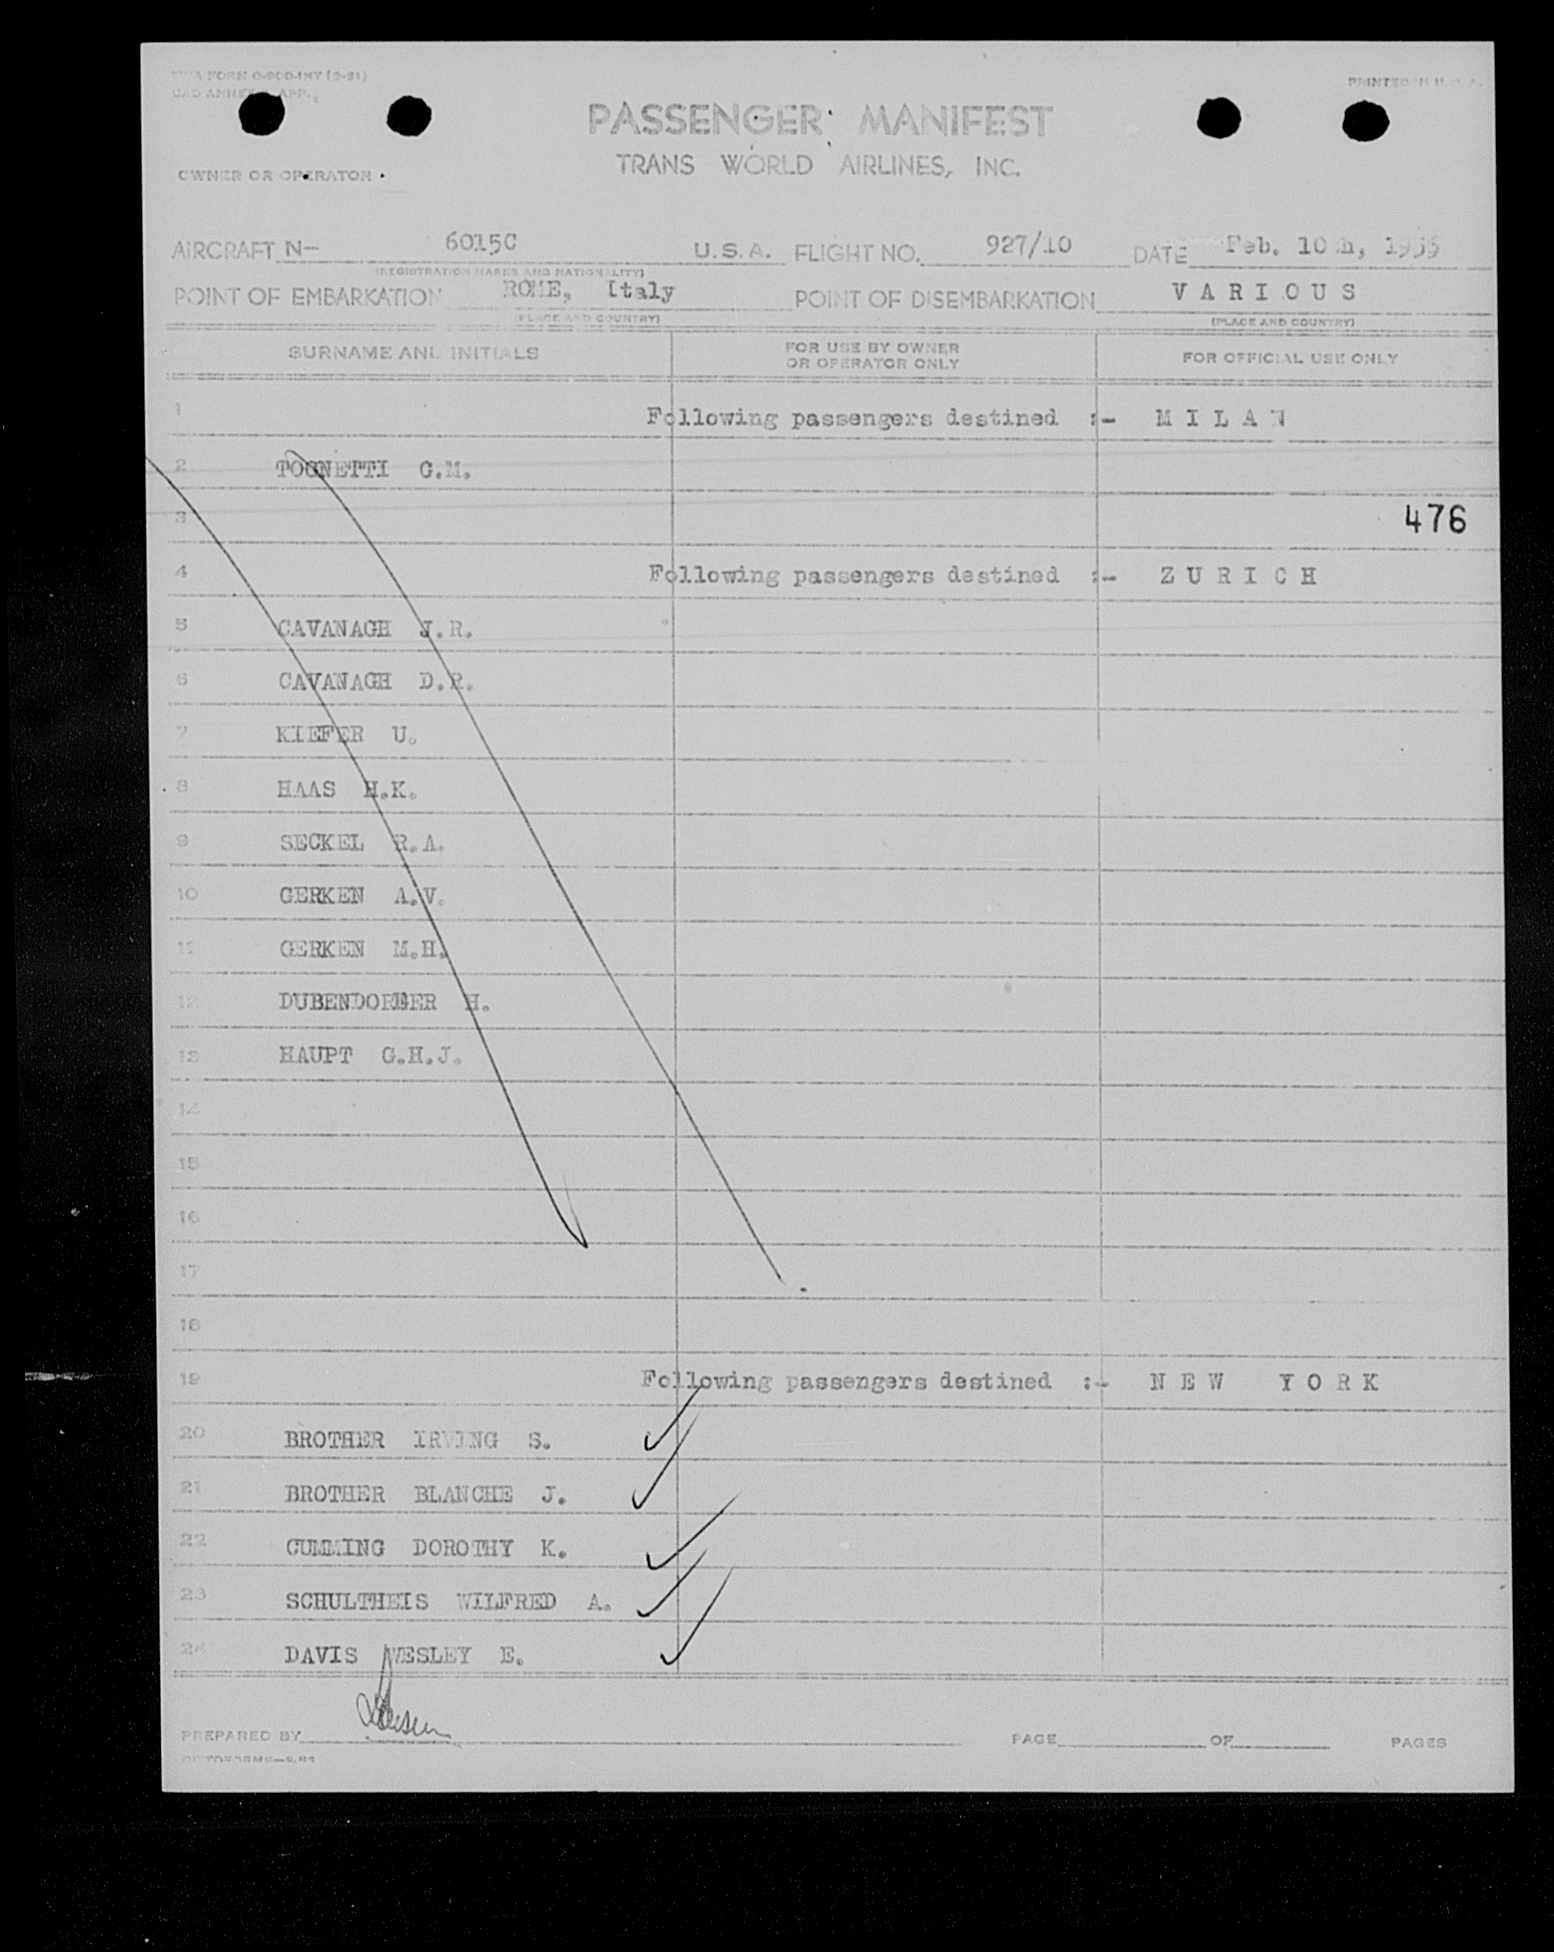 TWA FORM O-900-INT (2-51)
PRINTED IN U.S.A.
PASSENGER MANIFEST
TRANS WORLD AIRLINES, INC.
OWNER OR OPERATOR
AIRCRAFT N- 6015C U.S.A. FLIGHT NO. 927/10 DATE Feb. 10th, 1955
(REGISTRATION MARKS AND NATIONALITY)
POINT OF EMBARKATION ROME, Italy POINT OF DISEMBARKATION VARIOUS
(PLACE AND COUNTRY) (PLACE AND COUNTRY)
SURNAME AND INITIALS FOR USE BY OWNER OR OPERATOR ONLY FOR OFFICIAL USE ONLY
1 Following passengers destined :- MILAN
2 TOGNETTI G.M.
3 476
4 Following passengers destined :- ZURICH
5 CAVANAGH J.R.
6 CAVANAGH D.R.
7 KIEFER U.
8 HAAS H.K.
9 SECKEL R.A.
10 GERKEN A.V.
11 GERKEN M.H.
12 DUBENDORFER H.
13 HAUPT G.H.J.
14
15
16
17
18
19 Following passengers destined :- NEW YORK
20 BROTHER IRVING S.
21 BROTHER BLANCHE J.
22 CUMMING DOROTHY K.
23 SCHULTHEIS WILFRED A.
24 DAVIS WESLEY E.
PREPARED BY PAGE OF PAGES